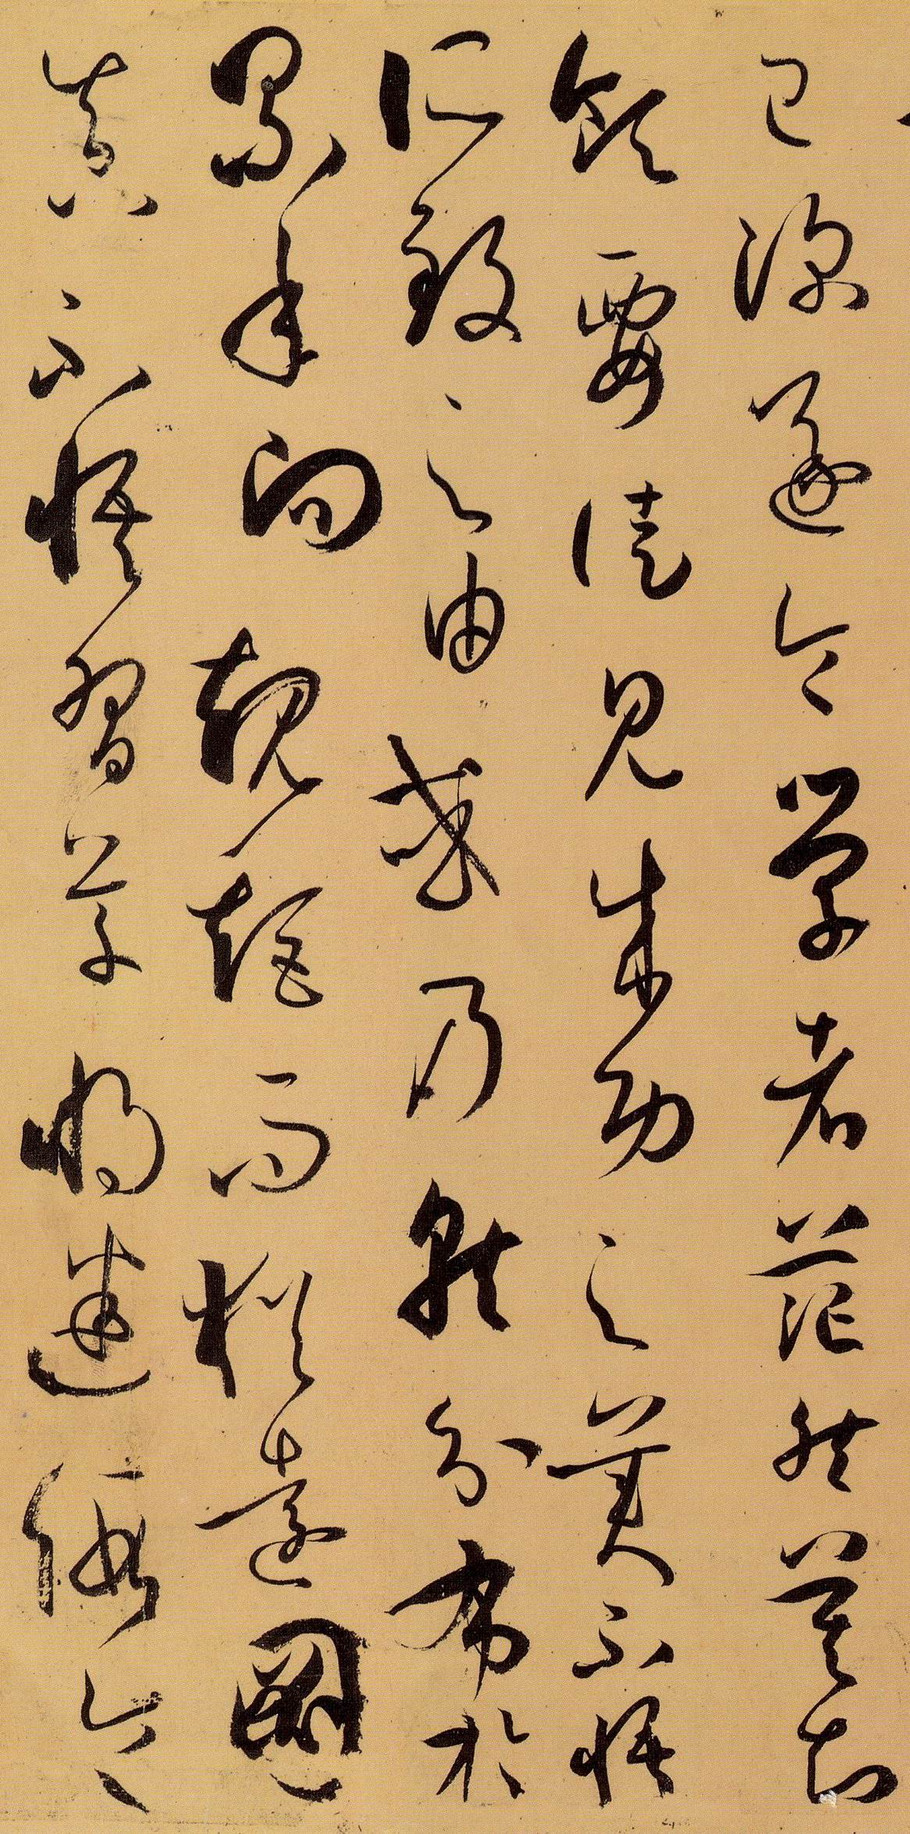 已深遂令學者茫然莫知
領要徒見成功之美不悟
所致之由或乃就分布於
累年向規矩而猶遠圖
真不悟習草將迷假令